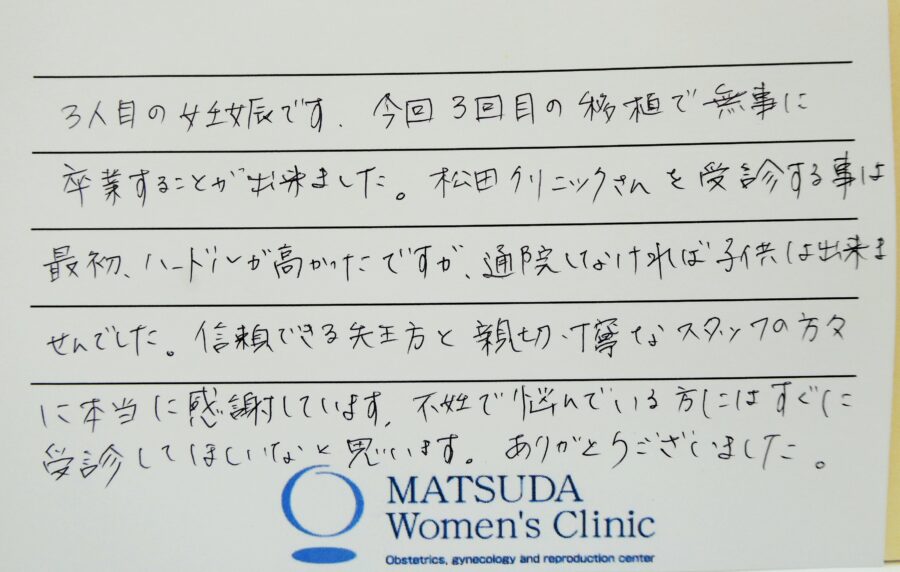 3人目の妊娠です. 今回3回目の移植で無事に
卒業することが出来ました。松田クリニックさんを受診する事は
最初、ハードルが高かったですが、通院しなければ子供は出来ま
せんでした。信頼できる先生方と親切・丁寧なスタッフの方々
に本当に感謝しています. 不妊で悩んでいる方にはすぐに
受診してほしいなと思います。ありがとうございました。
MATSUDA
Women's Clinic
Obstetrics, gynecology and reproduction center